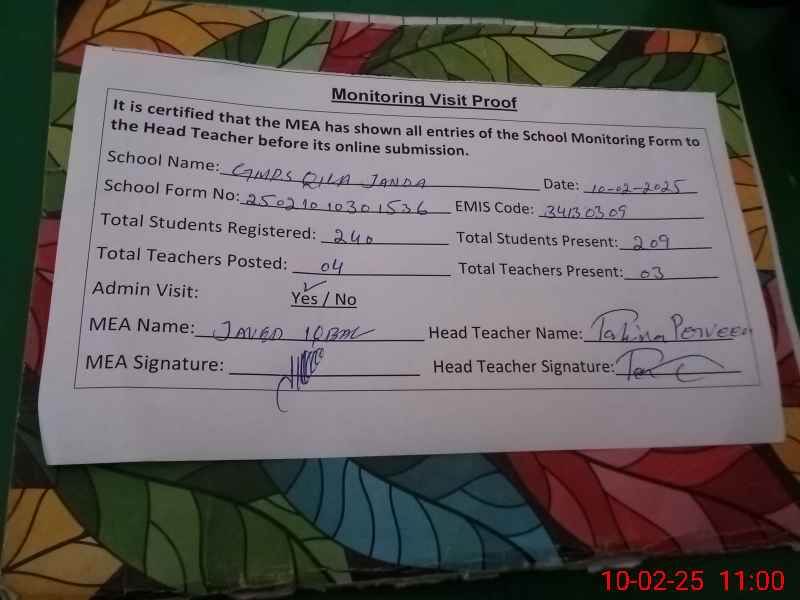 Monitoring Visit Proof
It is certified that the MEA has shown all entries of the School Monitoring Form to
the Head Teacher before its online submission.
School Name: GMPS QILA JANDA Date: 10-02-2025
School Form No: 25021010301536 EMIS Code: 34130309
Total Students Registered: 240 Total Students Present: 209
Total Teachers Posted: 04 Total Teachers Present: 03
Admin Visit: Yes / No
MEA Name: JAVED IQBAL Head Teacher Name: Perveen
MEA Signature: Head Teacher Signature:
10-02-25 11:00